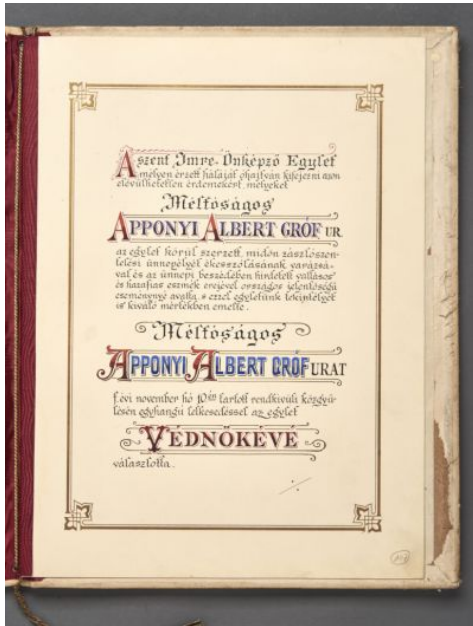 A szent Imre-Önképző Egylet
mélyen érzett háláját óhajtván kifejezni azon
elévülhetetlen érdemekért, melyeket
Méltóságos
APPONYI ALBERT GRÓF UR
az egylet körül szerzett, midőn zászlószen-
telési ünnepélyét ékesszólásának varázsá-
val és az ünnepi beszédében hirdetett vallásos
és hazafias eszmék erejével országos jelentőségű
eseménynyé avatta, s ezzel egyletünk tekintélyét
is kiváló mértékben emelte.
Méltóságos
APPONYI ALBERT GRÓF URAT
f. évi november hó 10én tartott rendkívüli közgyű-
lésén egyhangú lelkesedéssel az egylet
VÉDNÖKÉVÉ
választotta.